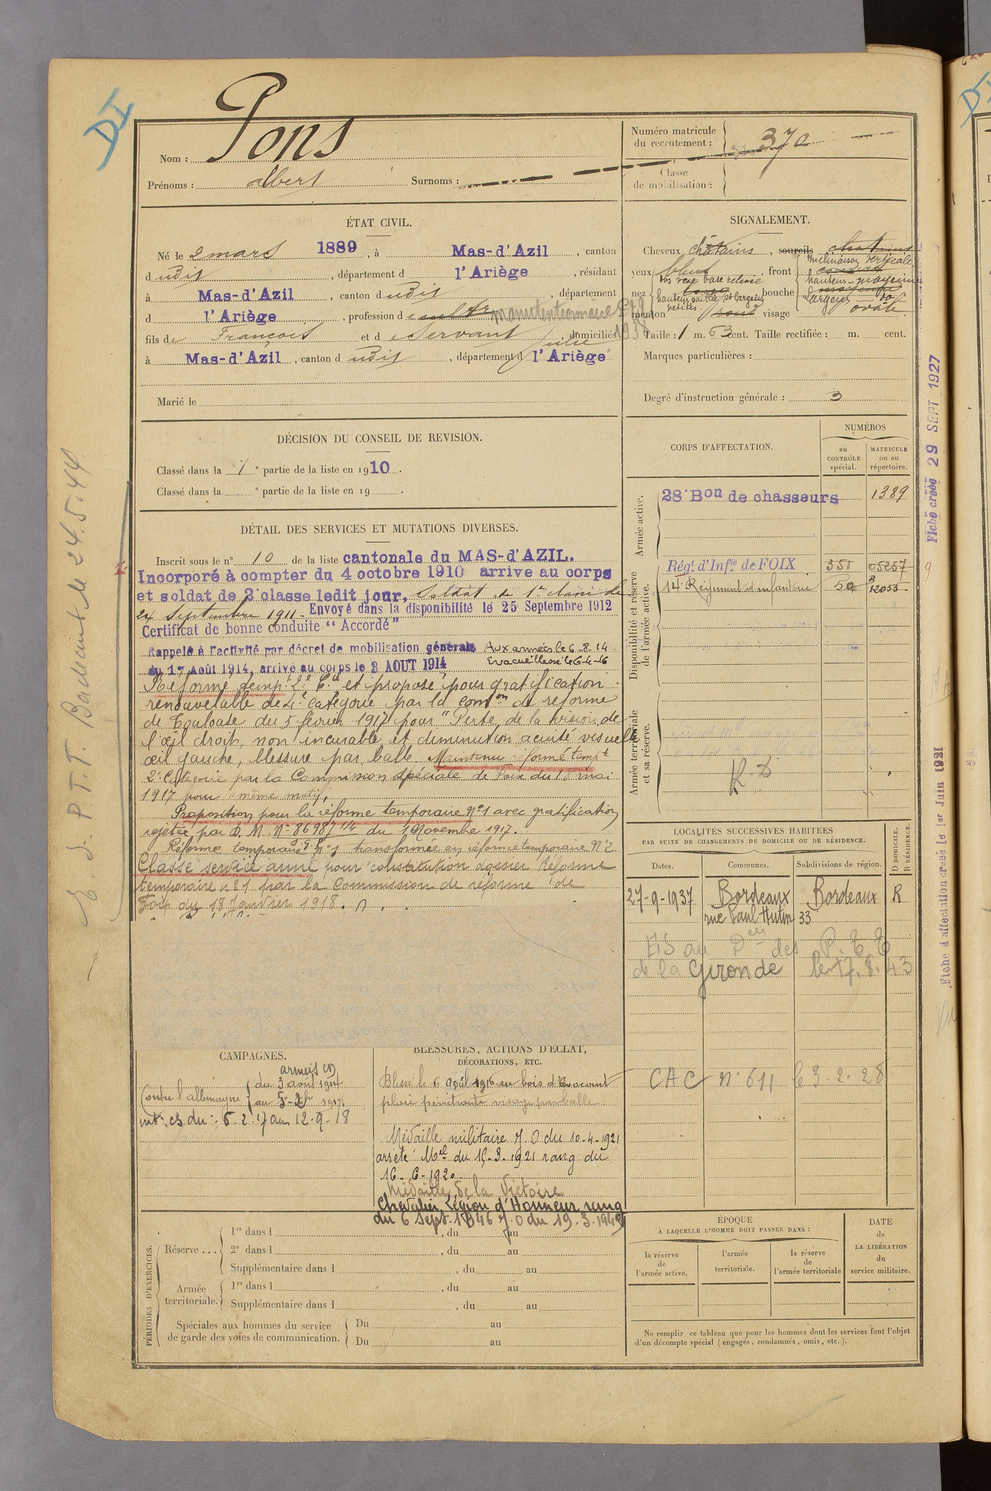 DI
Nom : Pons
Prénoms : Albert Surnoms :
Numéro matricule du recrutement : 370
Classe de mobilisation :
ÉTAT CIVIL.
Né le 2 mars 1889, à Mas-d'Azil, canton
dudit, département d l'Ariège, résidant
à Mas-d'Azil, canton dudit, département
d l'Ariège, profession de cultr manutentionnaire
fils de François et de Servant Julie, domiciliés
à Mas-d'Azil, canton dudit, département d l'Ariège
Marié le
SIGNALEMENT.
Cheveux châtains, sourcils châtains
yeux bleus, front inclinaison verticale
nez dos base relevée, bouche hauteur moyenne
hauteur saillie largeur petites largeur
menton rond visage ovale
Taille : 1 m. 63 cent. Taille rectifiée : m. cent.
Marques particulières :
Degré d'instruction générale : 3
DÉCISION DU CONSEIL DE REVISION.
Classé dans la 1e partie de la liste en 1910.
Classé dans la e partie de la liste en 19 .
CORPS D'AFFECTATION.
NUMÉROS
au CONTRÔLE spécial.
MATRICULE ou au répertoire.
Armée active.
28e Bon de chasseurs 1389
Disponibilité et réserve de l'armée active.
Régt d'Infie de FOIX 351 05257
14e Régiment d'infanterie 50 12053
Armée territoriale et sa réserve.
R.D
DÉTAIL DES SERVICES ET MUTATIONS DIVERSES.
Inscrit sous le n° 10 de la liste cantonale du MAS-d'AZIL.
Incorporé à compter du 4 octobre 1910 arrive au corps
et soldat de 2e classe ledit jour, Soldat de 1e classe le
24 Septembre 1911. Envoyé dans la disponibilité le 25 Septembre 1912
Certificat de bonne conduite "Accordé"
Rappelé à l'activité par décret de mobilisation générale Aux armées le 6-8-14
du 1er Août 1914, arrivé au corps le 3 AOUT 1914 Evacué blessé le 6-4-16
Réformé tempre 2e Cie et proposé pour gratification
renouvelable de 4e catégorie par la comon de réforme
de Toulouse du 5 février 1917 pour "Perte de la vision de
l'œil droit, non incurable et diminution acuité visuelle
œil gauche, blessure par balle. Maintenu réformé tempt
2e Catégorie par la Commission spéciale de Foix du 15 mai
1917 pour même motif.
Proposition pour la réforme temporaire n°1 avec gratification
rejetée par D.M. N° 86987 1/4 du 1 Novembre 1917.
Réforme temporaire N°1 transformée en réforme temporaire N°2
Classé service armé pour constitution dossier Réforme
temporaire n°1 par la Commission de réforme de
Foix du 18 Janvier 1918.
LOCALITÉS SUCCESSIVES HABITÉES
PAR SUITE DE CHANGEMENTS DE DOMICILE OU DE RÉSIDENCE.
Dates. Communes. Subdivisions de région. D. DOMICILE. R. RÉSIDENCE.
27-9-1937 Bordeaux Bordeaux R
rue Paul-Hutin 33
AS au Don des P.T.T
de la Gironde le 17.8.43
CAC n° 611 le 3-2-28
CAMPAGNES.
armées en
Contre l'Allemagne du 3 août 1914
au 5-2-1917
int. cs du 6.2.17 au 12-9-18
BLESSURES, ACTIONS D'ÉCLAT, DÉCORATIONS, ETC.
Blessé le 6 avril 1916 au bois d'Avocourt
plaie pénétrante visage par balle
Médaille militaire J.O du 10-4-1921
arrêté Mel du 15-3-1921 rang du
16-6-1920
Médaille de la Victoire
Chevalier Légion d'Honneur rang
du 6 Sept. 1946 J.O du 19-3-1949
PÉRIODES D'EXERCICES.
Réserve .... 1re dans l , du au
2e dans l , du au
Supplémentaire dans l , du au
Armée territoriale. 1re dans l , du au
Supplémentaire dans l , du au
Spéciales aux hommes du service de garde des voies de communication. Du au
Du au
ÉPOQUE
À LAQUELLE L'HOMME DOIT PASSER DANS :
la réserve de l'armée active.
l'armée territoriale.
la réserve de l'armée territoriale
DATE de LA LIBÉRATION du service militaire.
Ne remplir ce tableau que pour les hommes dont les services font l'objet
d'un décompte spécial (engagés, condamnés, omis, etc.).
Fiche créée 29 SEPT 1927
Fiche d'affectation créée le 1er Juin 1921
E.S. P.T.T. Bordeaux le 24.5.44